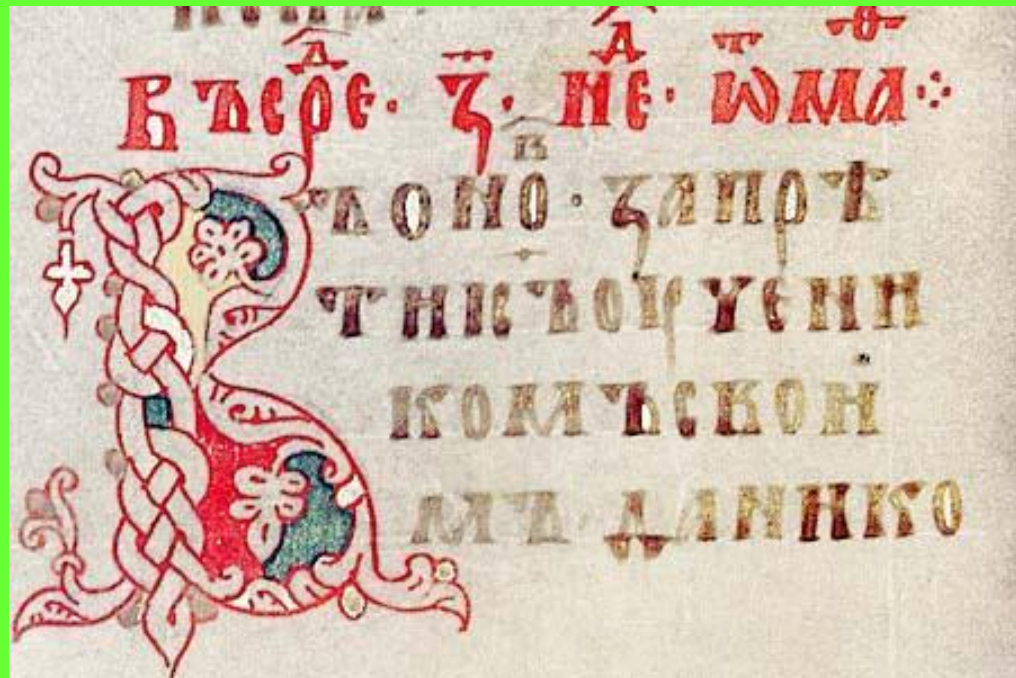 въсрⷣе· з҃· неⷣ· ѿмаⷴ⁘
Въоноⷡ· запрѣ
тиіс҃ъоучени
комъсвои
мъ даники